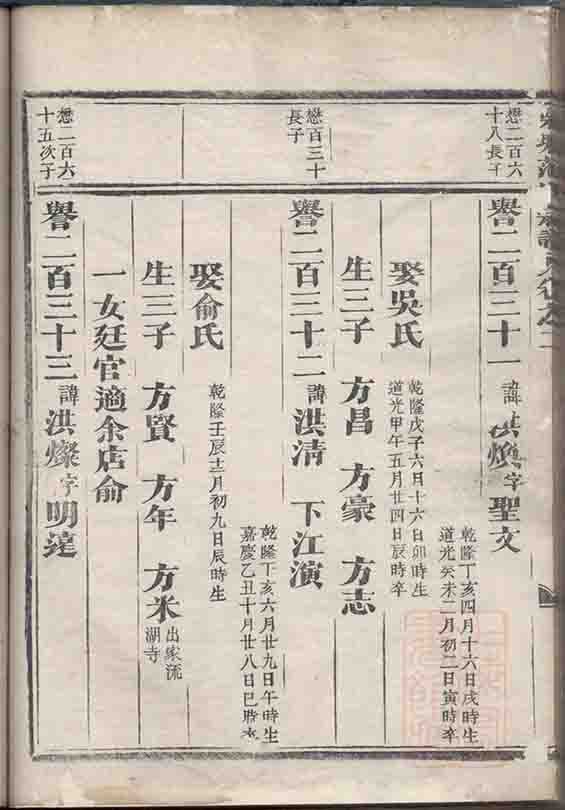 懋二百六
十八長子
譽二百三十一 諱洪煥字聖文
乾隆丁亥四月十六日戌時生
道光癸未二月初二日寅時卒
娶吳氏
乾隆戊子六月十六日卯時生
道光甲午五月廿四日辰時卒
生三子 方昌 方豪 方志
懋百三十
長子
譽二百三十二 諱洪清 下江演
乾隆丁亥六月廿九日午時生
嘉慶乙丑十月廿八日巳時卒
娶俞氏
乾隆壬辰十二月初九日辰時生
生三子 方賢 方年 方米
出家流
湖寺
一女廷官適余店俞
懋二百六
十五次子
譽二百三十三 諱洪燦字明達